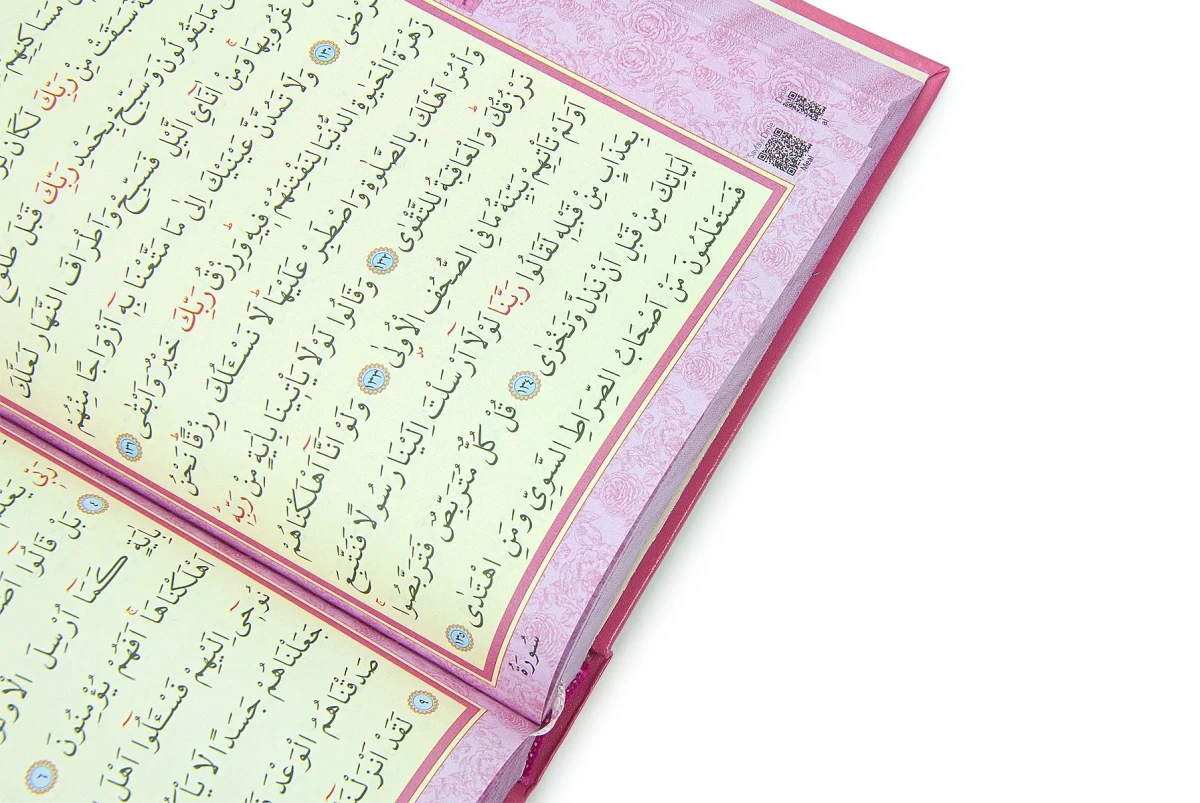 مَسَاكِنِهِمْ
سَبَقَتْ مِنْ رَبِّكَ لَكَانَ
مَا يَقُولُونَ وَسَبِّحْ بِحَمْدِ رَبِّكَ قَبْلَ طُلُوعِ
غُرُوبِهَا وَمِنْ اٰنَٓائِ الَّيْلِ فَسَبِّحْ وَاَطْرَافَ النَّهَارِ لَعَلَّكَ
تَرْضٰى ١٣٠ وَلَا تَمُدَّنَّ عَيْنَيْكَ اِلٰى مَا مَتَّعْنَا بِهِٓ اَزْوَاجًا مِنْهُمْ
زَهْرَةَ الْحَيٰوةِ الدُّنْيَا لِنَفْتِنَهُمْ فِيهِ وَرِزْقُ رَبِّكَ خَيْرٌ وَاَبْقٰى ١٣١
وَأْمُرْ اَهْلَكَ بِالصَّلٰوةِ وَاصْطَبِرْ عَلَيْهَا لَا نَسْـَٔلُكَ رِزْقًا نَحْنُ
نَرْزُقُكَ وَالْعَاقِبَةُ لِلتَّقْوٰى ١٣٢ وَقَالُوا لَوْلَا يَأْتِينَا بِاٰيَةٍ مِنْ رَبِّهِ
اَوَلَمْ تَأْتِهِمْ بَيِّنَةُ مَا فِى الصُّحُفِ الْاُولٰى ١٣٣ وَلَوْ اَنَّٓا اَهْلَكْنَاهُمْ
بِعَذَابٍ مِنْ قَبْلِهِ لَقَالُوا رَبَّنَا لَوْلَٓا اَرْسَلْتَ اِلَيْنَا رَسُولًا فَنَتَّبِعَ
اٰيَاتِكَ مِنْ قَبْلِ اَنْ نَذِلَّ وَنَخْزٰى ١٣٤ قُلْ كُلٌّ مُتَرَبِّصٌ فَتَرَبَّصُوا
فَسَتَعْلَمُونَ مَنْ اَصْحَابُ الصِّرَاطِ السَّوِىِّ وَمَنِ اهْتَدٰى ١٣٥
سُورَةُ
رَبِّى يَعْلَمُ
٤ بَلْ قَالُٓوا
بِاٰيَةٍ كَمَٓا اُرْسِلَ الْاَوَّلُونَ
اَهْلَكْنَاهَا اَفَهُمْ يُؤْمِنُونَ ٦
نُوحِٓى اِلَيْهِمْ فَسْـَٔلُٓوا اَهْلَ
جَعَلْنَاهُمْ جَسَدًا لَا
صَدَقْنَاهُمُ الْوَعْدَ
٩ لَقَدْ اَنْزَلْنَٓا